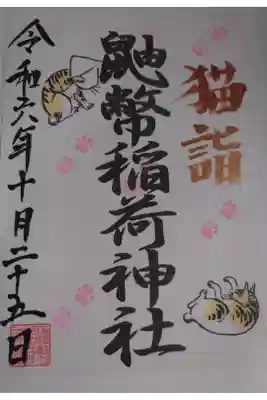 猫詣
鼬幣稲荷神社
令和六年十月二十五日